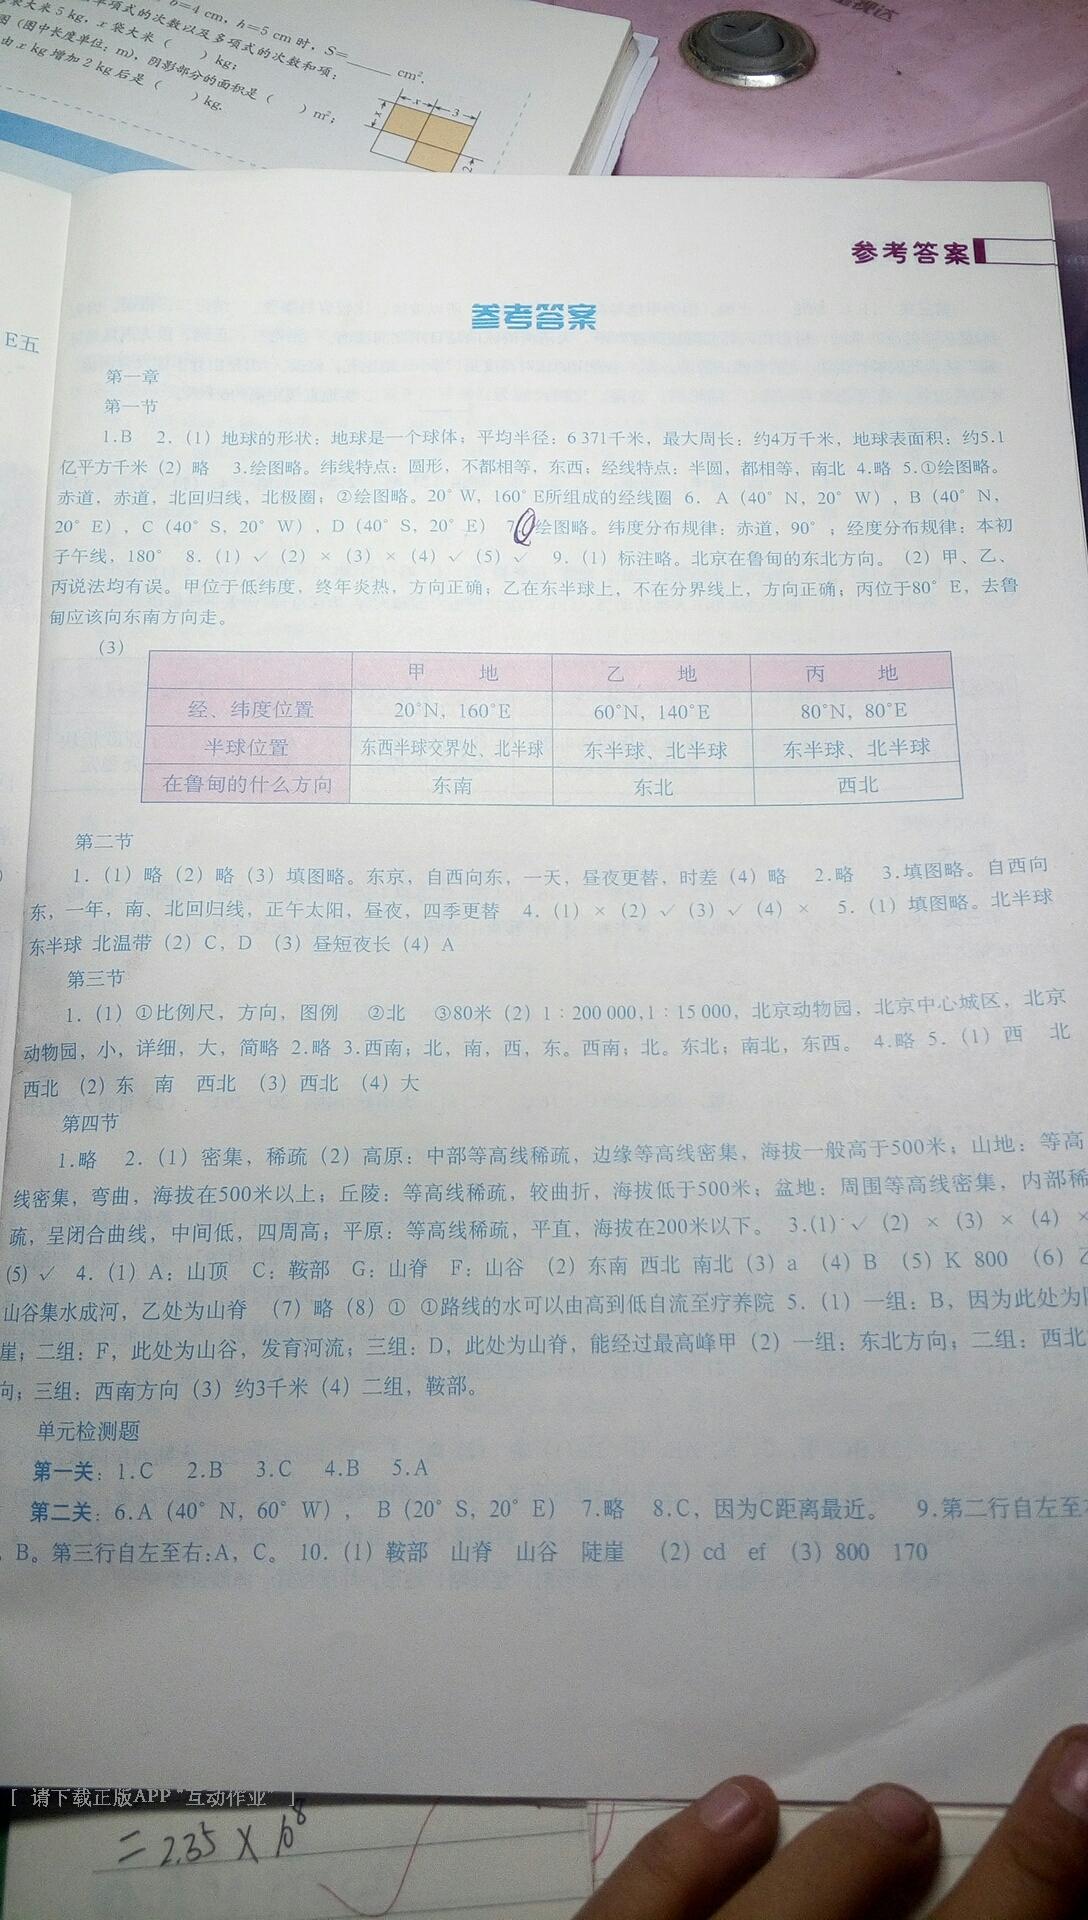 b=4 cm, h=5 cm 时, S=____ cm².
单项式的次数以及多项式的次数和项:
袋大米5 kg, x 袋大米 (　) kg;
图 (图中长度单位: m), 阴影部分的面积是 (　) m²;
由 x kg 增加 2 kg 后是 (　) kg.
x 3
x
2
E五
参考答案
参考答案
第一章
第一节
1.B 2.（1）地球的形状：地球是一个球体；平均半径：6 371千米，最大周长：约4万千米，地球表面积：约5.1
亿平方千米（2）略 3.绘图略。纬线特点：圆形，不都相等，东西；经线特点：半圆，都相等，南北 4.略 5.①绘图略。
赤道，赤道，北回归线，北极圈；②绘图略。20°W，160°E所组成的经线圈 6. A（40°N，20°W），B（40°N，
20°E），C（40°S，20°W），D（40°S，20°E） 7. 绘图略。纬度分布规律：赤道，90°；经度分布规律：本初
子午线，180° 8.（1）√（2）×（3）×（4）√（5）√ 9.（1）标注略。北京在鲁甸的东北方向。（2）甲、乙、
丙说法均有误。甲位于低纬度，终年炎热，方向正确；乙在东半球上，不在分界线上，方向正确；丙位于80°E，去鲁
甸应该向东南方向走。
（3）
甲 地 乙 地 丙 地
经、纬度位置 20°N，160°E 60°N，140°E 80°N，80°E
半球位置 东西半球交界处、北半球 东半球、北半球 东半球、北半球
在鲁甸的什么方向 东南 东北 西北
第二节
1.（1）略（2）略（3）填图略。东京，自西向东，一天，昼夜更替，时差（4）略 2.略 3.填图略。自西向
东，一年，南、北回归线，正午太阳，昼夜，四季更替 4.（1）×（2）√（3）√（4）× 5.（1）填图略。北半球
东半球 北温带（2）C，D （3）昼短夜长（4）A
第三节
1.（1）①比例尺，方向，图例 ②北 ③80米（2）1∶200 000,1∶15 000，北京动物园，北京中心城区，北京
动物园，小，详细，大，简略 2.略 3.西南；北，南，西，东。西南；北。东北；南北，东西。 4.略 5.（1）西 北
西北 （2）东 南 西北 （3）西北 （4）大
第四节
1.略 2.（1）密集，稀疏（2）高原：中部等高线稀疏，边缘等高线密集，海拔一般高于500米；山地：等高
线密集，弯曲，海拔在500米以上；丘陵：等高线稀疏，较曲折，海拔低于500米；盆地：周围等高线密集，内部稀
疏，呈闭合曲线，中间低，四周高；平原：等高线稀疏，平直，海拔在200米以下。 3.(1)√（2）×（3）×（4）×
(5)√ 4.（1）A：山顶 C：鞍部 G：山脊 F：山谷 （2）东南 西北 南北（3）a （4）B （5）K 800 （6）乙
山谷集水成河，乙处为山脊 （7）略（8）① ①路线的水可以由高到低自流至疗养院 5.（1）一组：B，因为此处为
崖；二组：F，此处为山谷，发育河流；三组：D，此处为山脊，能经过最高峰甲（2）一组：东北方向；二组：西北
向；三组：西南方向（3）约3千米（4）二组，鞍部。
单元检测题
第一关：1.C 2.B 3.C 4.B 5.A
第二关：6.A（40°N，60°W）， B（20°S，20°E） 7.略 8.C，因为C距离最近。 9.第二行自左至
，B。第三行自左至右:A，C。 10.（1）鞍部 山脊 山谷 陡崖 （2）cd ef （3）800 170
[ 请下载正版APP“互动作业” ]
= 2.35 × 10⁸